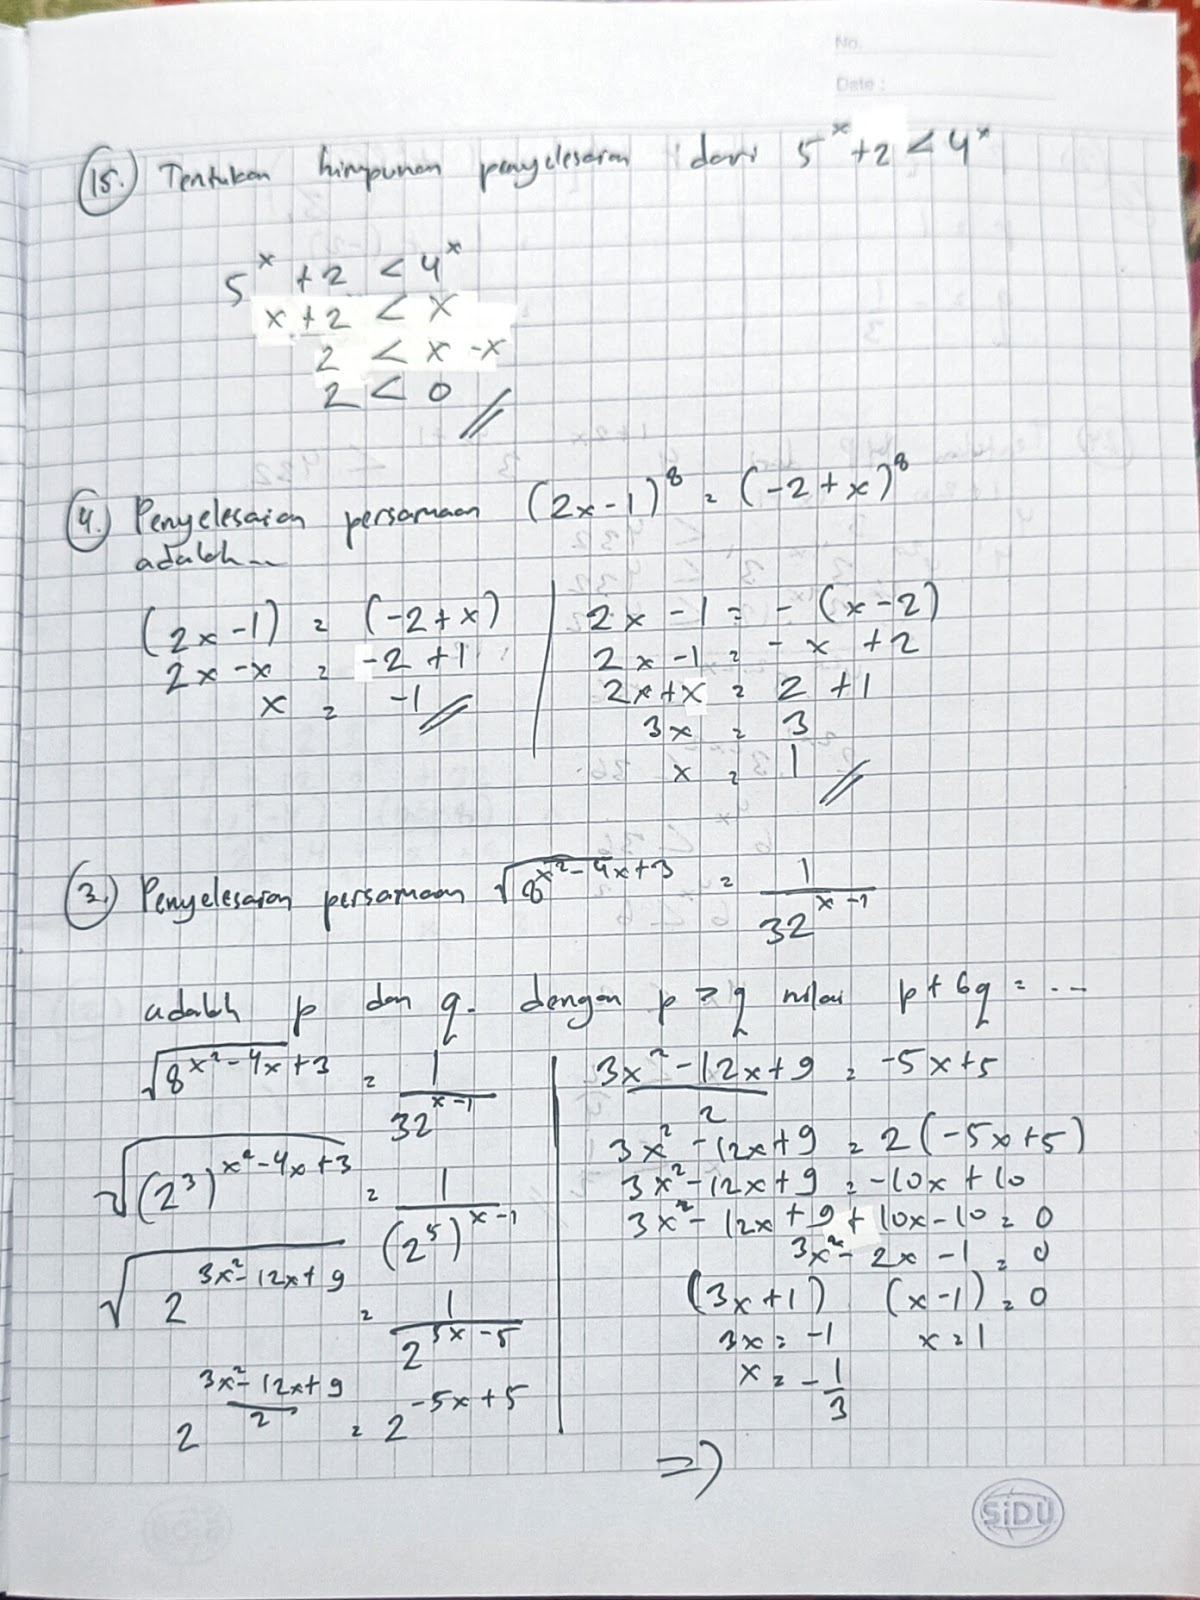 No.
Date :
15. Tentukan himpunan penyelesaian dari 5^x + 2 < 4^x
5^x + 2 < 4^x
x + 2 < x
2 < x - x
2 < 0
4. Penyelesaian persamaan (2x - 1)^8 = (-2 + x)^8
adalah...
(2x - 1) = (-2 + x)
2x - x = -2 + 1
x = -1
2x - 1 = - (x - 2)
2x - 1 = - x + 2
2x + x = 2 + 1
3x = 3
x = 1
3. Penyelesaian persamaan √8^(x² - 4x + 3) = 1/32^(x - 1)
adalah p dan q. dengan p > q nilai p + 6q = ...
√8^(x² - 4x + 3) = 1/32^(x - 1)
√(2³)^(x² - 4x + 3) = 1/(2⁵)^(x - 1)
√2^(3x² - 12x + 9) = 1/2^(5x - 5)
2^((3x² - 12x + 9)/2) = 2^(-5x + 5)
(3x² - 12x + 9)/2 = -5x + 5
3x² - 12x + 9 = 2(-5x + 5)
3x² - 12x + 9 = -10x + 10
3x² - 12x + 9 + 10x - 10 = 0
3x² - 2x - 1 = 0
(3x + 1) (x - 1) = 0
3x = -1 x = 1
x = -1/3
⇒
SiDU